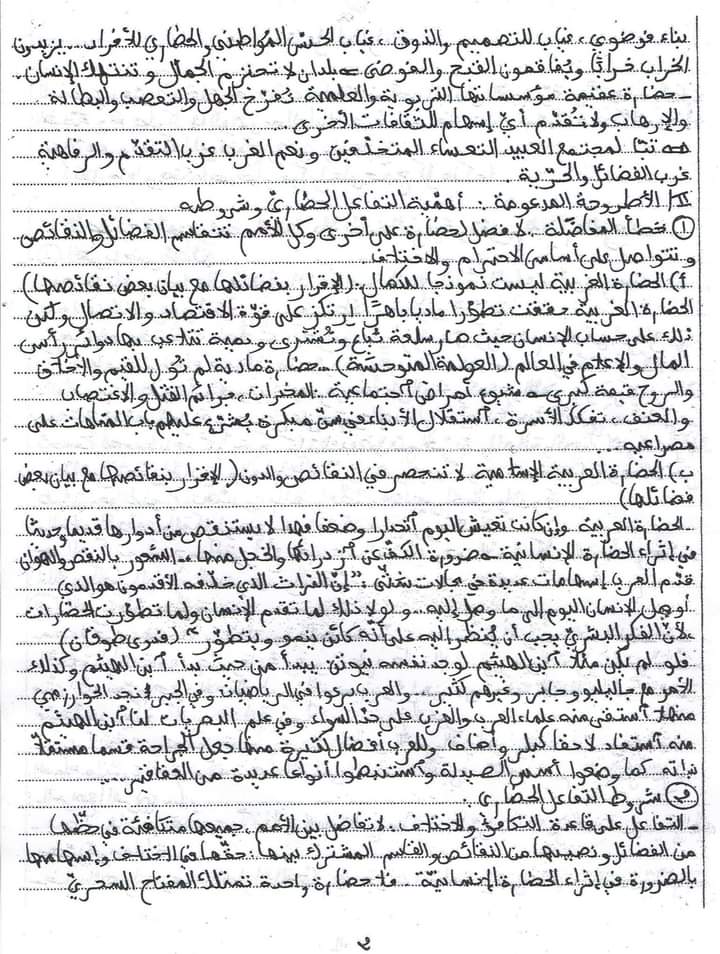 بناء فوضوي، غياب للتصميم والذوق، غياب الحسّ المُواطنيّ والحضاري للأفراد... يزيدون
الخراب خرابًا ويُفاقمون القبح والفوضى ⇐ بلدان لا تحترم الجمال وتنتهك الإنسان.
- حضارة عقيمة مؤسساتها التربوية والعلمية تُفرّخ الجهل والتعصب والبطالة
والإرهاب ولا تُقدّم أيّ إسهام للثقافات الأخرى...
⇐ تبّا لمجتمع العبيد التعساء المتخلّفين ونعم الغرب غرب التقدّم والرفاهية
غرب الفضائل والحرّية.
II- الأطروحة المدعومة: أهمّية التفاعل الحضاريّ وشروطه
① خطأ المفاضلة: لا فضل لحضارة على أخرى وكل الأمم تتقاسم الفضائل والنقائص
وتتواصل على أساس الاحترام والاختلاف.
أ) الحضارة الغربية ليست نموذجا للكمال: (الإقرار بفضائلها مع بيان بعض نقائصها)
الحضارة الغربية حققت تطوّرا ماديا باهرًا ارتكز على قوّة الاقتصاد والاتصال ولكن
ذلك على حساب الإنسان حيث صار سلعة تُباع وتُشترى ودمية تتلاعب بها دوائر رأس
المال والإعلام في العالم (العولمة المتوحشة)... حضارة مادية لم تُول للقيم والأخلاق
والروح قيمة كبرى ⇐ شيوع أمراض اجتماعية: المخدّرات، جرائم القتل والاغتصاب
والعنف، تفكك الأسرة، استقلال الأبناء في سنّ مبكرة يُشرّع عليهم باب المتاهات على
مصراعيه...
ب) الحضارة العربية الإسلامية لا تنحصر في النقائص والدون (الإقرار بنقائصها مع بيان بعض
فضائلها)
- الحضارة العربية وإن كانت تعيش اليوم انحدارا وضعفا فهذا لا يستنقص من أدوارها قديما وحديثا
في إثراء الحضارة الإنسانية ⇐ ضرورة الكفّ عن ازدرائها والخجل منها... الشعور بالنقص والهوان
قدّم العرب إسهامات عديدة في مجالات شتّى: "إنّ التراث الذي خلّفه الأقدمون هو الذي
أوصل الإنسان اليوم إلى ما وصل إليه... ولولا ذلك لما تقدم الإنسان ولما تطوّرت الحضارات
لأنّ الفكر البشريّ يجب أن يُنظر إليه على أنّه كائن ينمو ويتطوّر" (قدري طوقان)
فلو لم يكن مثلا ابن الهيثم لوجد نفسه نيوتن يبدأ من حيث بدأ ابن الهيثم وكذلك
الأمر مع جاليليو وجابر وغيرهم كثير... والعرب برعوا في الرياضيات وفي الجبر نجد الخوارزمي
منهلا استقى منه علماء العرب والغرب على حدّ السواء وفي علم البصريات لنا ابن الهيثم
منه استفاد لاحقا كبلر وأضاف وللعرب أفضال كثيرة منها جعل الجراحة قسما مستقلّا
بذاته كما وضعوا أسس الصيدلة واستنبطوا أنواعا عديدة من العقاقير...
② شروط التفاعل الحضاري:
- التفاعل على قاعدة التكافؤ والاختلاف: لا تفاضل بين الأمم، جميعها متكافئة في حظّها
من الفضائل ونصيبها من النقائص والقاسم المشترك بينها: حقّها في الاختلاف وإسهامها
بالضرورة في إثراء الحضارة الإنسانيّة. فلا حضارة واحدة تمتلك المفتاح السحريّ